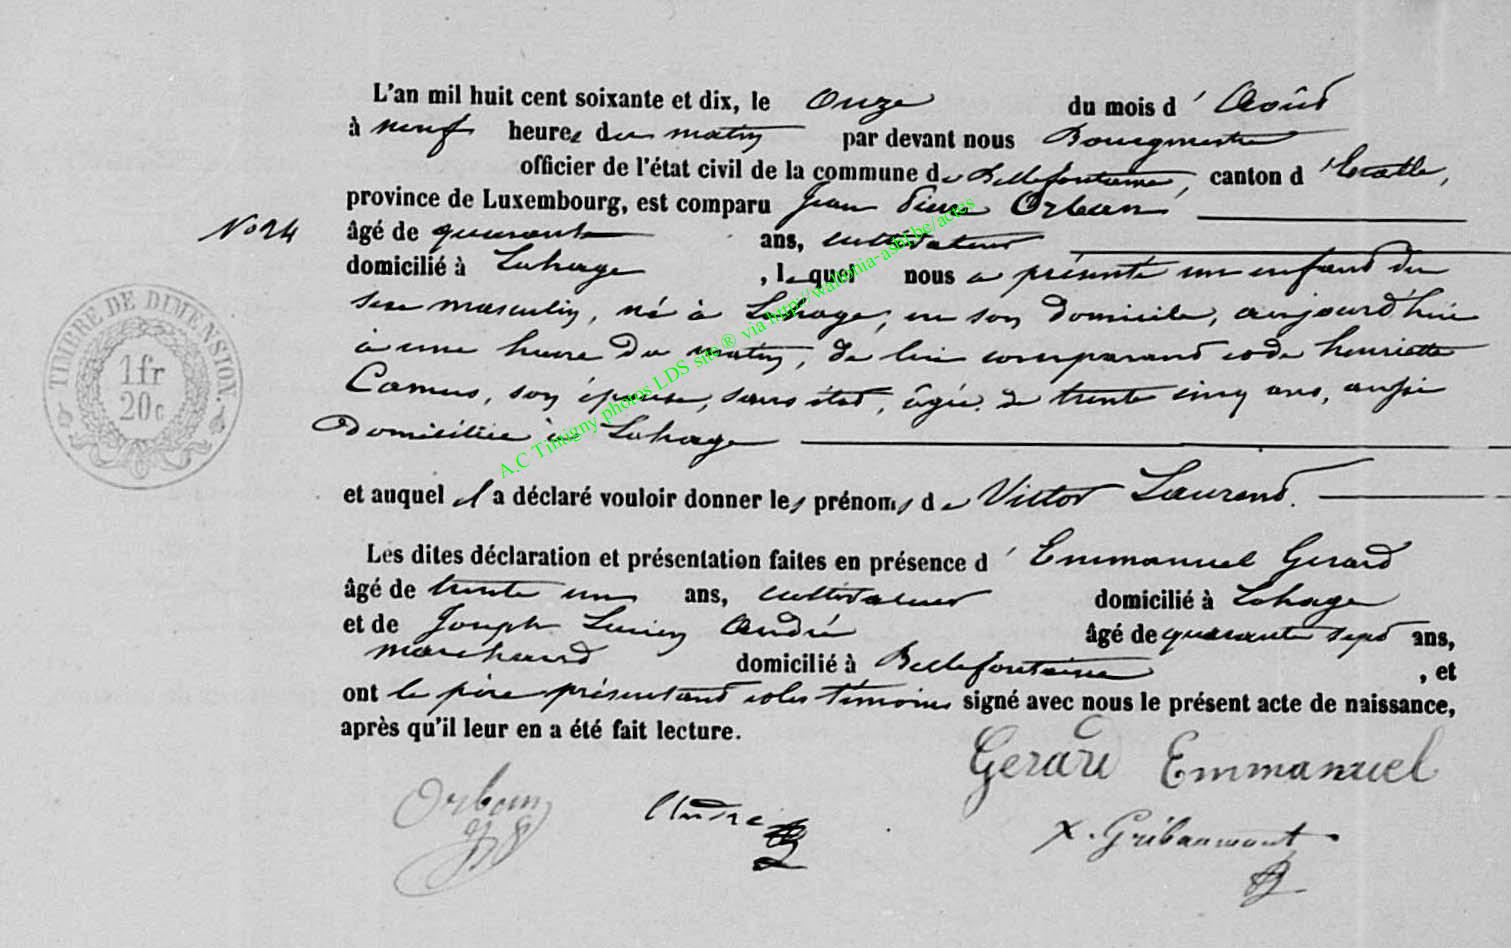 L'an mil huit cent soixante et dix, le Onze du mois d' Août
à neuf heures du matin par devant nous Bourgmestre
officier de l'état civil de la commune de Bellefontaine, canton d'Etalle,
province de Luxembourg, est comparu Jean Pierre Orban
No 24
âgé de quarante ans, cultivateur
domicilié à Lahage, lequel nous a présenté un enfant du
sexe masculin, né à Lahage, en son domicile, aujourd'hui
à une heure du matin, de lui comparant et de henriette
Camus, son épouse, sans état, âgée de trente cinq ans, aussi
domiciliée à Lahage
et auquel il a déclaré vouloir donner les prénoms de Victor Laurent.
Les dites déclaration et présentation faites en présence d'Emmanuel Gerard
âgé de trente un ans, cultivateur domicilié à Lahage
et de Joseph Lucien André âgé de quarante sept ans,
marchand domicilié à Bellefontaine, et
ont le père présentant et les témoins signé avec nous le présent acte de naissance,
après qu'il leur en a été fait lecture.
Gerard Emmanuel
Orban JP
André
X. Gribaumont
TIMBRE DE DIMENSION.
1fr
20c
A.C Tintigny photos LDS site ® via http://wallonia-asbl.be/actes